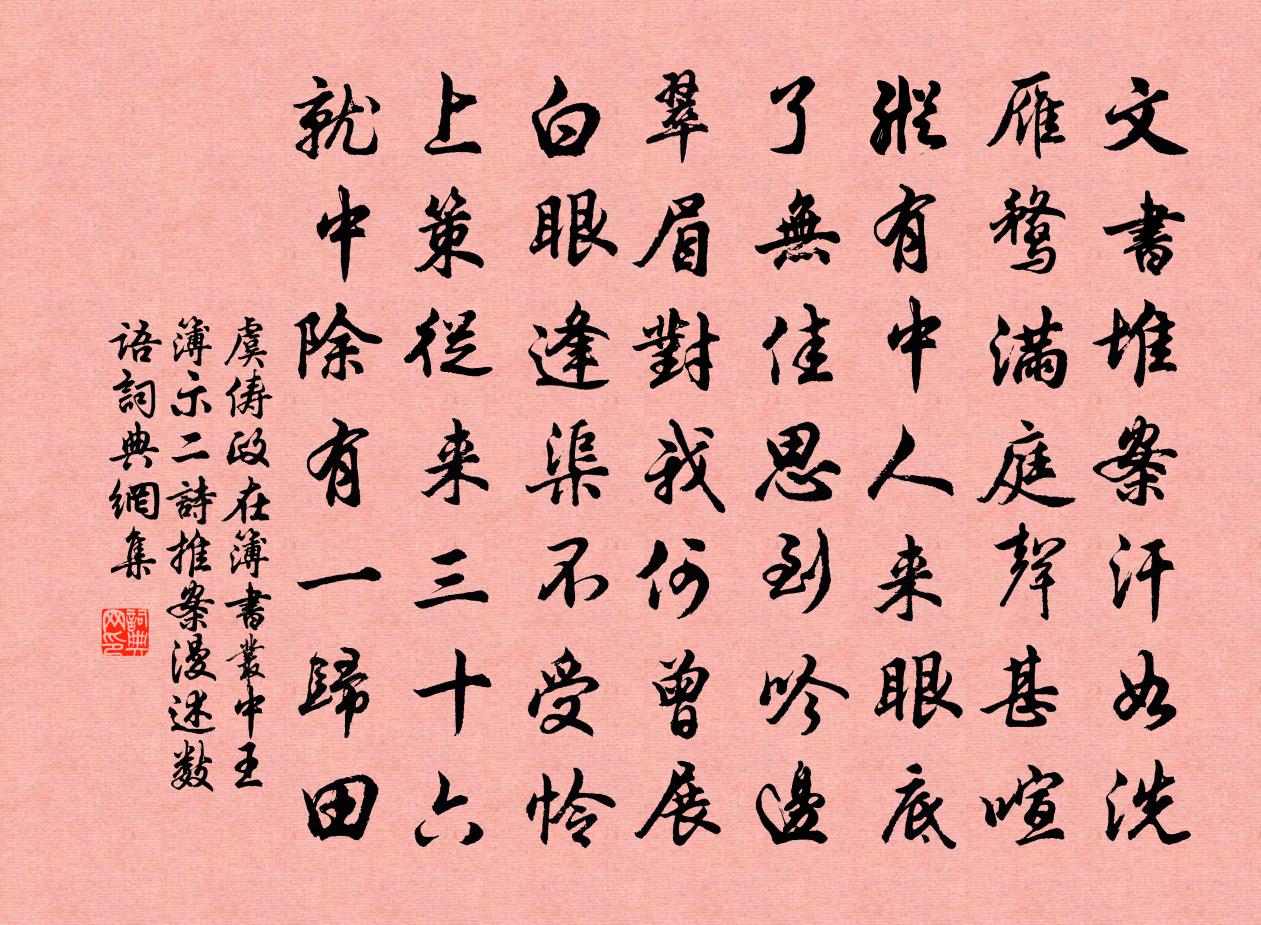 文書堆案汗如洗
雁鶩滿庭聲甚喧
縱有中人來眼底
了無佳思到吟邊
翠眉對我何曾展
白眼逢渠不受憐
上策從來三十六
就中除有一歸田
虞儔政在簿書叢中王
簿示二詩推案漫述數
語詞典網集
詞典
网印